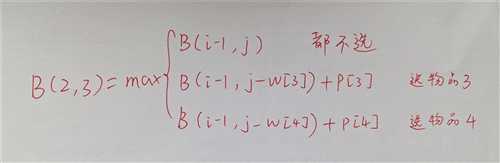 B(i-1, j) 都不选
B(2,3)=max{ B(i-1, j-W[3])+P[3] 选物品3
B(i-1, j-W[4])+P[4] 选物品4